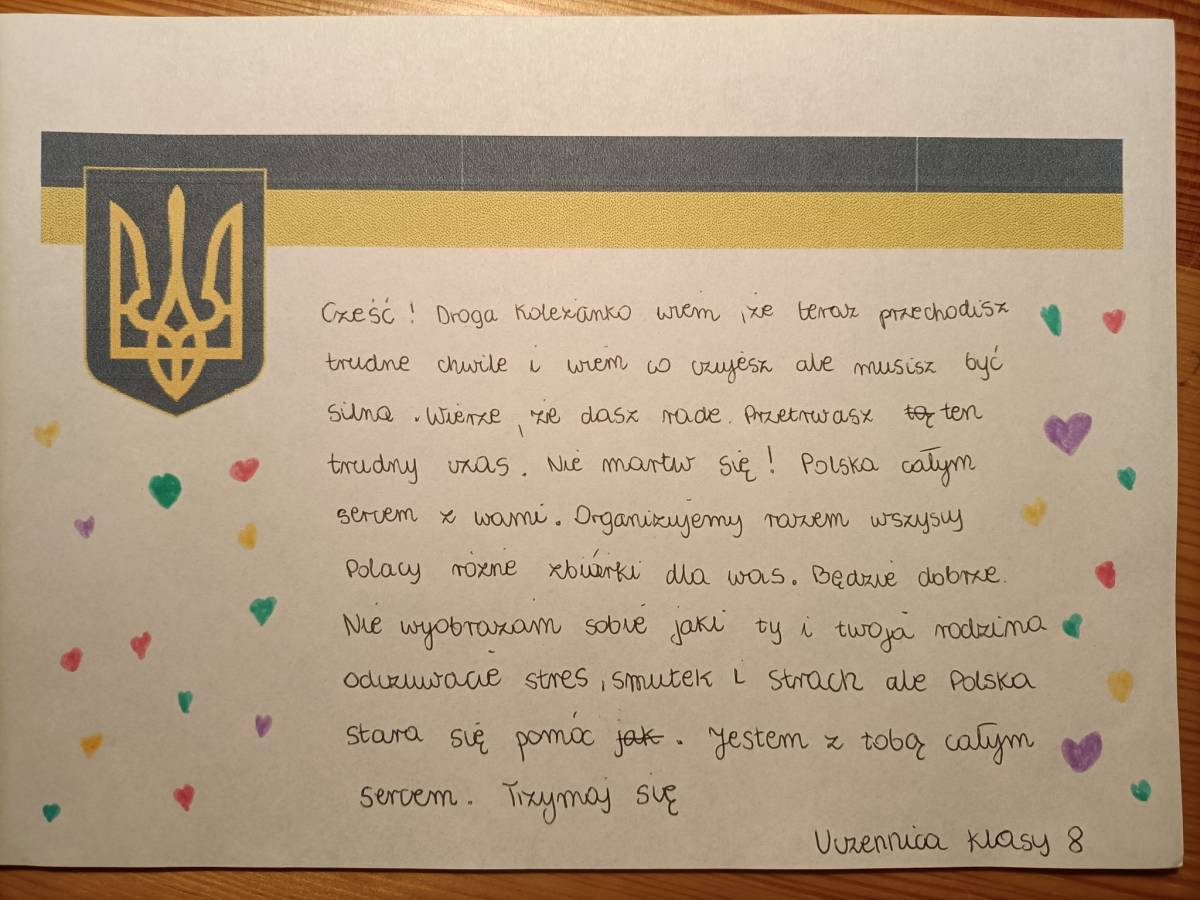 Cześć! Droga Koleżanko wiem, że teraz przechodisz
trudne chwile i wiem co czujesz ale musisz być
silna. Wierze, że dasz rade. Przetrwasz tą ten
trudny czas. Nie martw się! Polska całym
sercem z wami. Organizujemy razem wszyscy
Polacy różne zbiórki dla was. Będzie dobrze.
Nie wyobrazam sobie jaki ty i twoja rodzina
odczuwacie stres, smutek i strach ale Polska
stara się pomóc jak. Jestem z tobą całym
sercem. Trzymaj się
Uczennica klasy 8